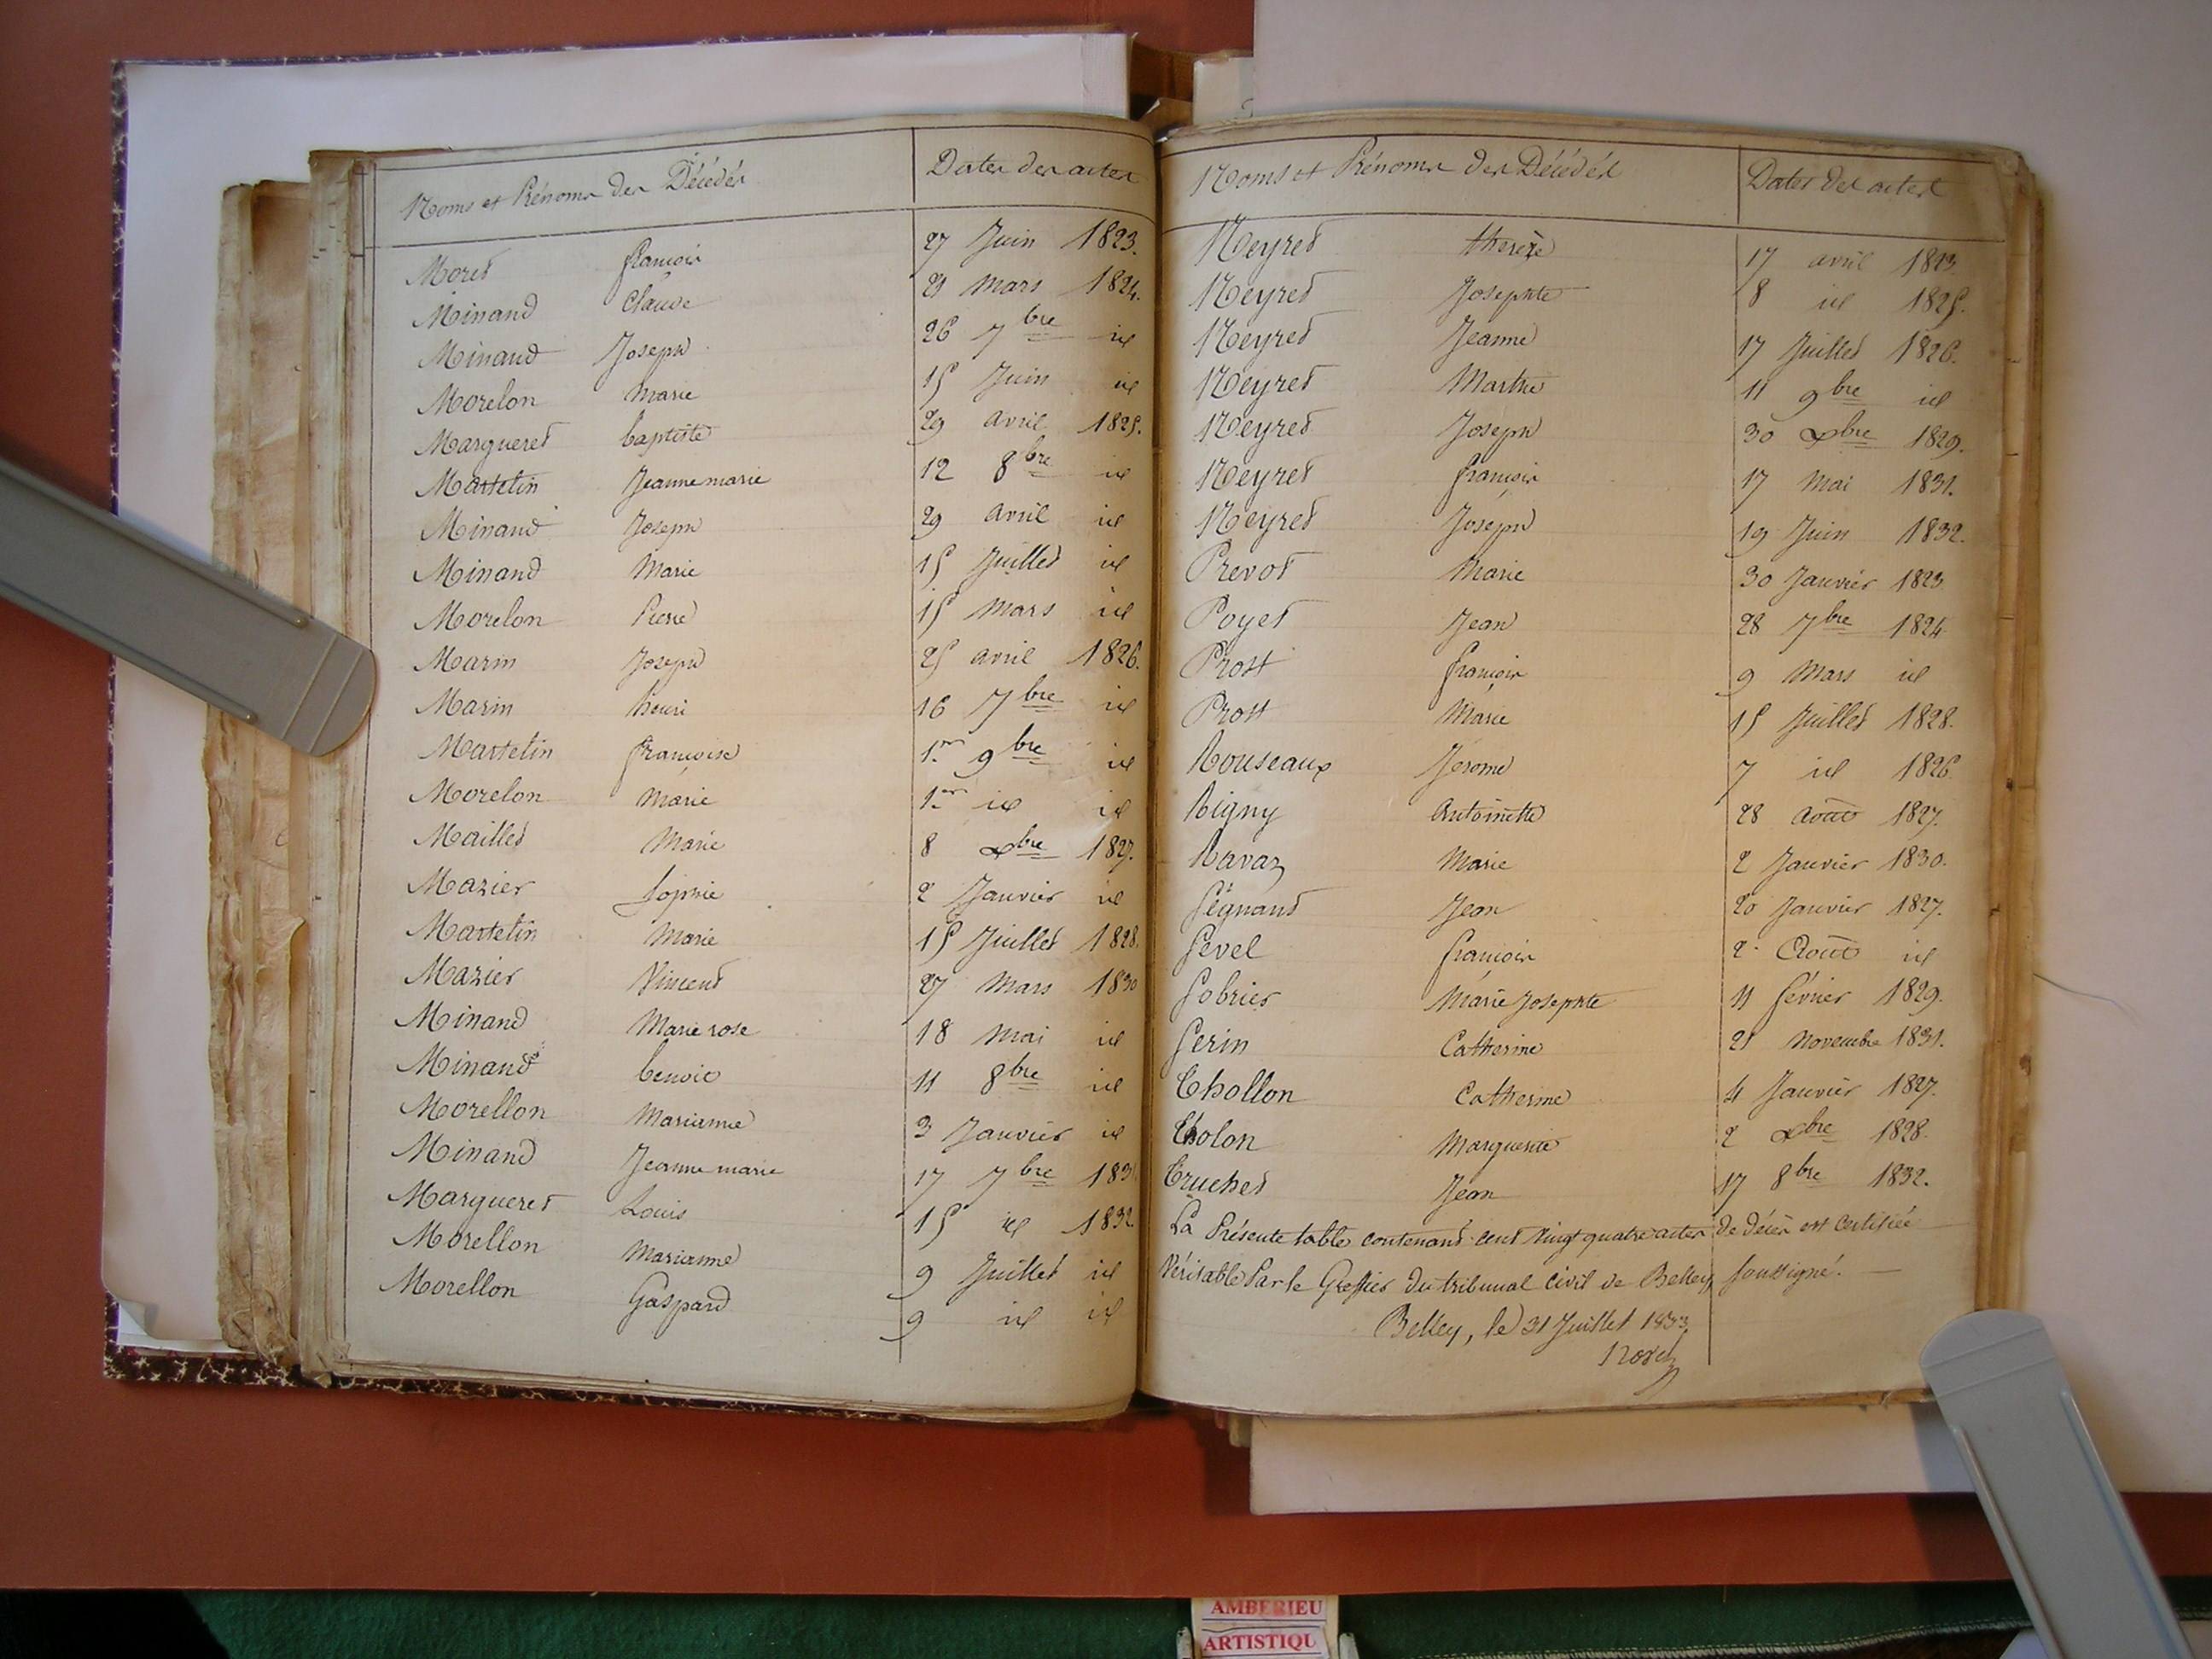 Noms et Prénoms des Décédés Dates des actes
Moret françois 27 Juin 1823.
Minand Claude 21 Mars 1824.
Minand Joseph 26 7bre id
Morelon Marie 15 Juin id
Margueret baptiste 29 avril 1825.
Martelin Jeanne marie 12 8bre id
Minand Joseph 29 avril id
Minand Marie 15 Juillet id
Morelon Pierre 15 Mars id
Marin Joseph 25 avril 1826.
Marin henri 16 7bre id
Martelin françoise 1er 9bre id
Morelon Marie 1er id id
Maillet Marie 8 xbre 1827.
Mazier Sophie 2 Janvier id
Martelin Marie 15 Juillet 1828.
Mazier Vincent 27 Mars 1830
Minand Marie rose 18 Mai id
Minand benoit 11 8bre id
Morellon Marianne 3 Janvier id
Minand Jeanne marie 17 7bre 1831
Margueret Louis 15 id 1832.
Morellon Marianne 9 Juillet id
Morellon Gaspard 9 id id
Noms et Prénoms des Décédés Dates des actes
Neyret thereze 17 avril 1823
Neyret Josephte 8 id 1825.
Neyret Jeanne 17 Juillet 1826.
Neyret Marthe 11 9bre id
Neyret Joseph 30 xbre 1829.
Neyret françois 17 Mai 1831.
Neyret Joseph 19 Juin 1832.
Prevot Marie 30 Janvier 1823
Poyet Jean 28 7bre 1824
Prost françois 9 Mars id
Prost Marie 15 Juillet 1828.
Rouseaux Jerome 7 id 1826.
Rigny Antoinette 28 août 1827.
Ravaz Marie 2 Janvier 1830.
Ségnand Jean 20 Janvier 1827.
Sevel françois 2 Août id
Sobrier Marie Josephte 11 février 1829.
Serin Catherine 21 Novembre 1831.
Chollon Catherine 4 Janvier 1827.
Tholon Marguerite 2 xbre 1828.
Truchet Jean 17 8bre 1832.
La Présente table contenant cent vingt quatre actes de décès est certifiée
Véritable Par le Greffier du tribunal Civil de Belley soussigné.
Belley, le 31 Juillet 1833
AMBERIEU
ARTISTIQU